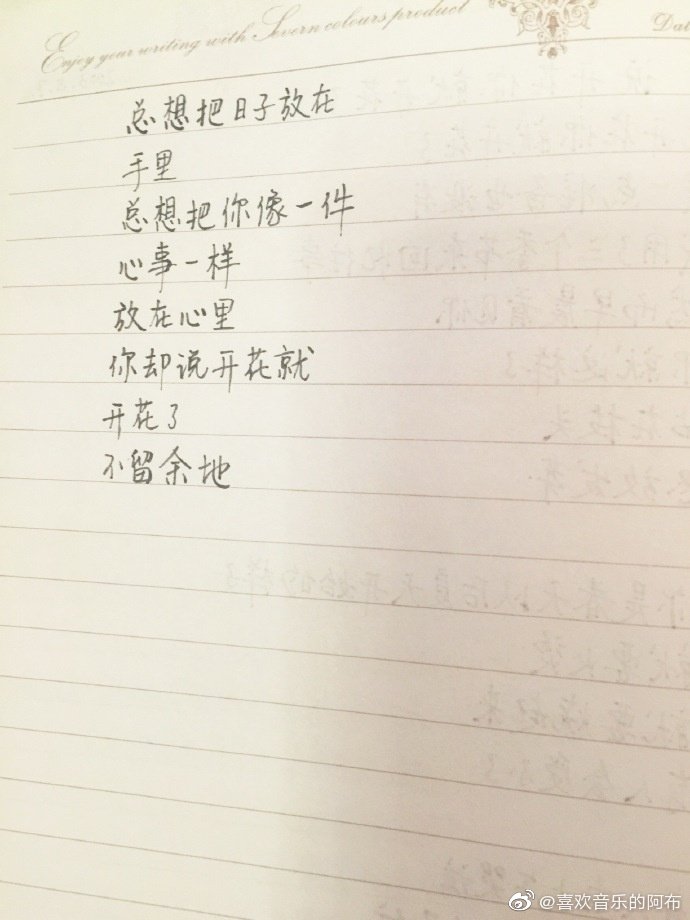 Enjoy your writing with Severn colours product
Dat
总想把日子放在
手里
总想把你像一件
心事一样
放在心里
你却说开花就
开花了
不留余地
@喜欢音乐的阿布